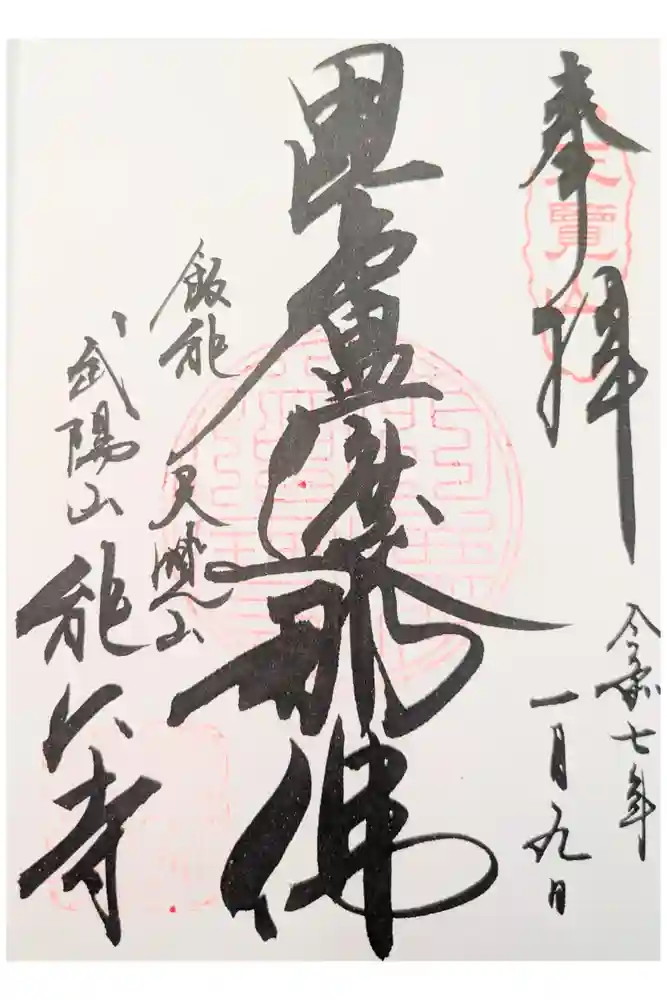 奉拝
天覧山
令和七年
一月九日
毘盧遮那佛
飯能
天覧山
武陽山
能仁寺